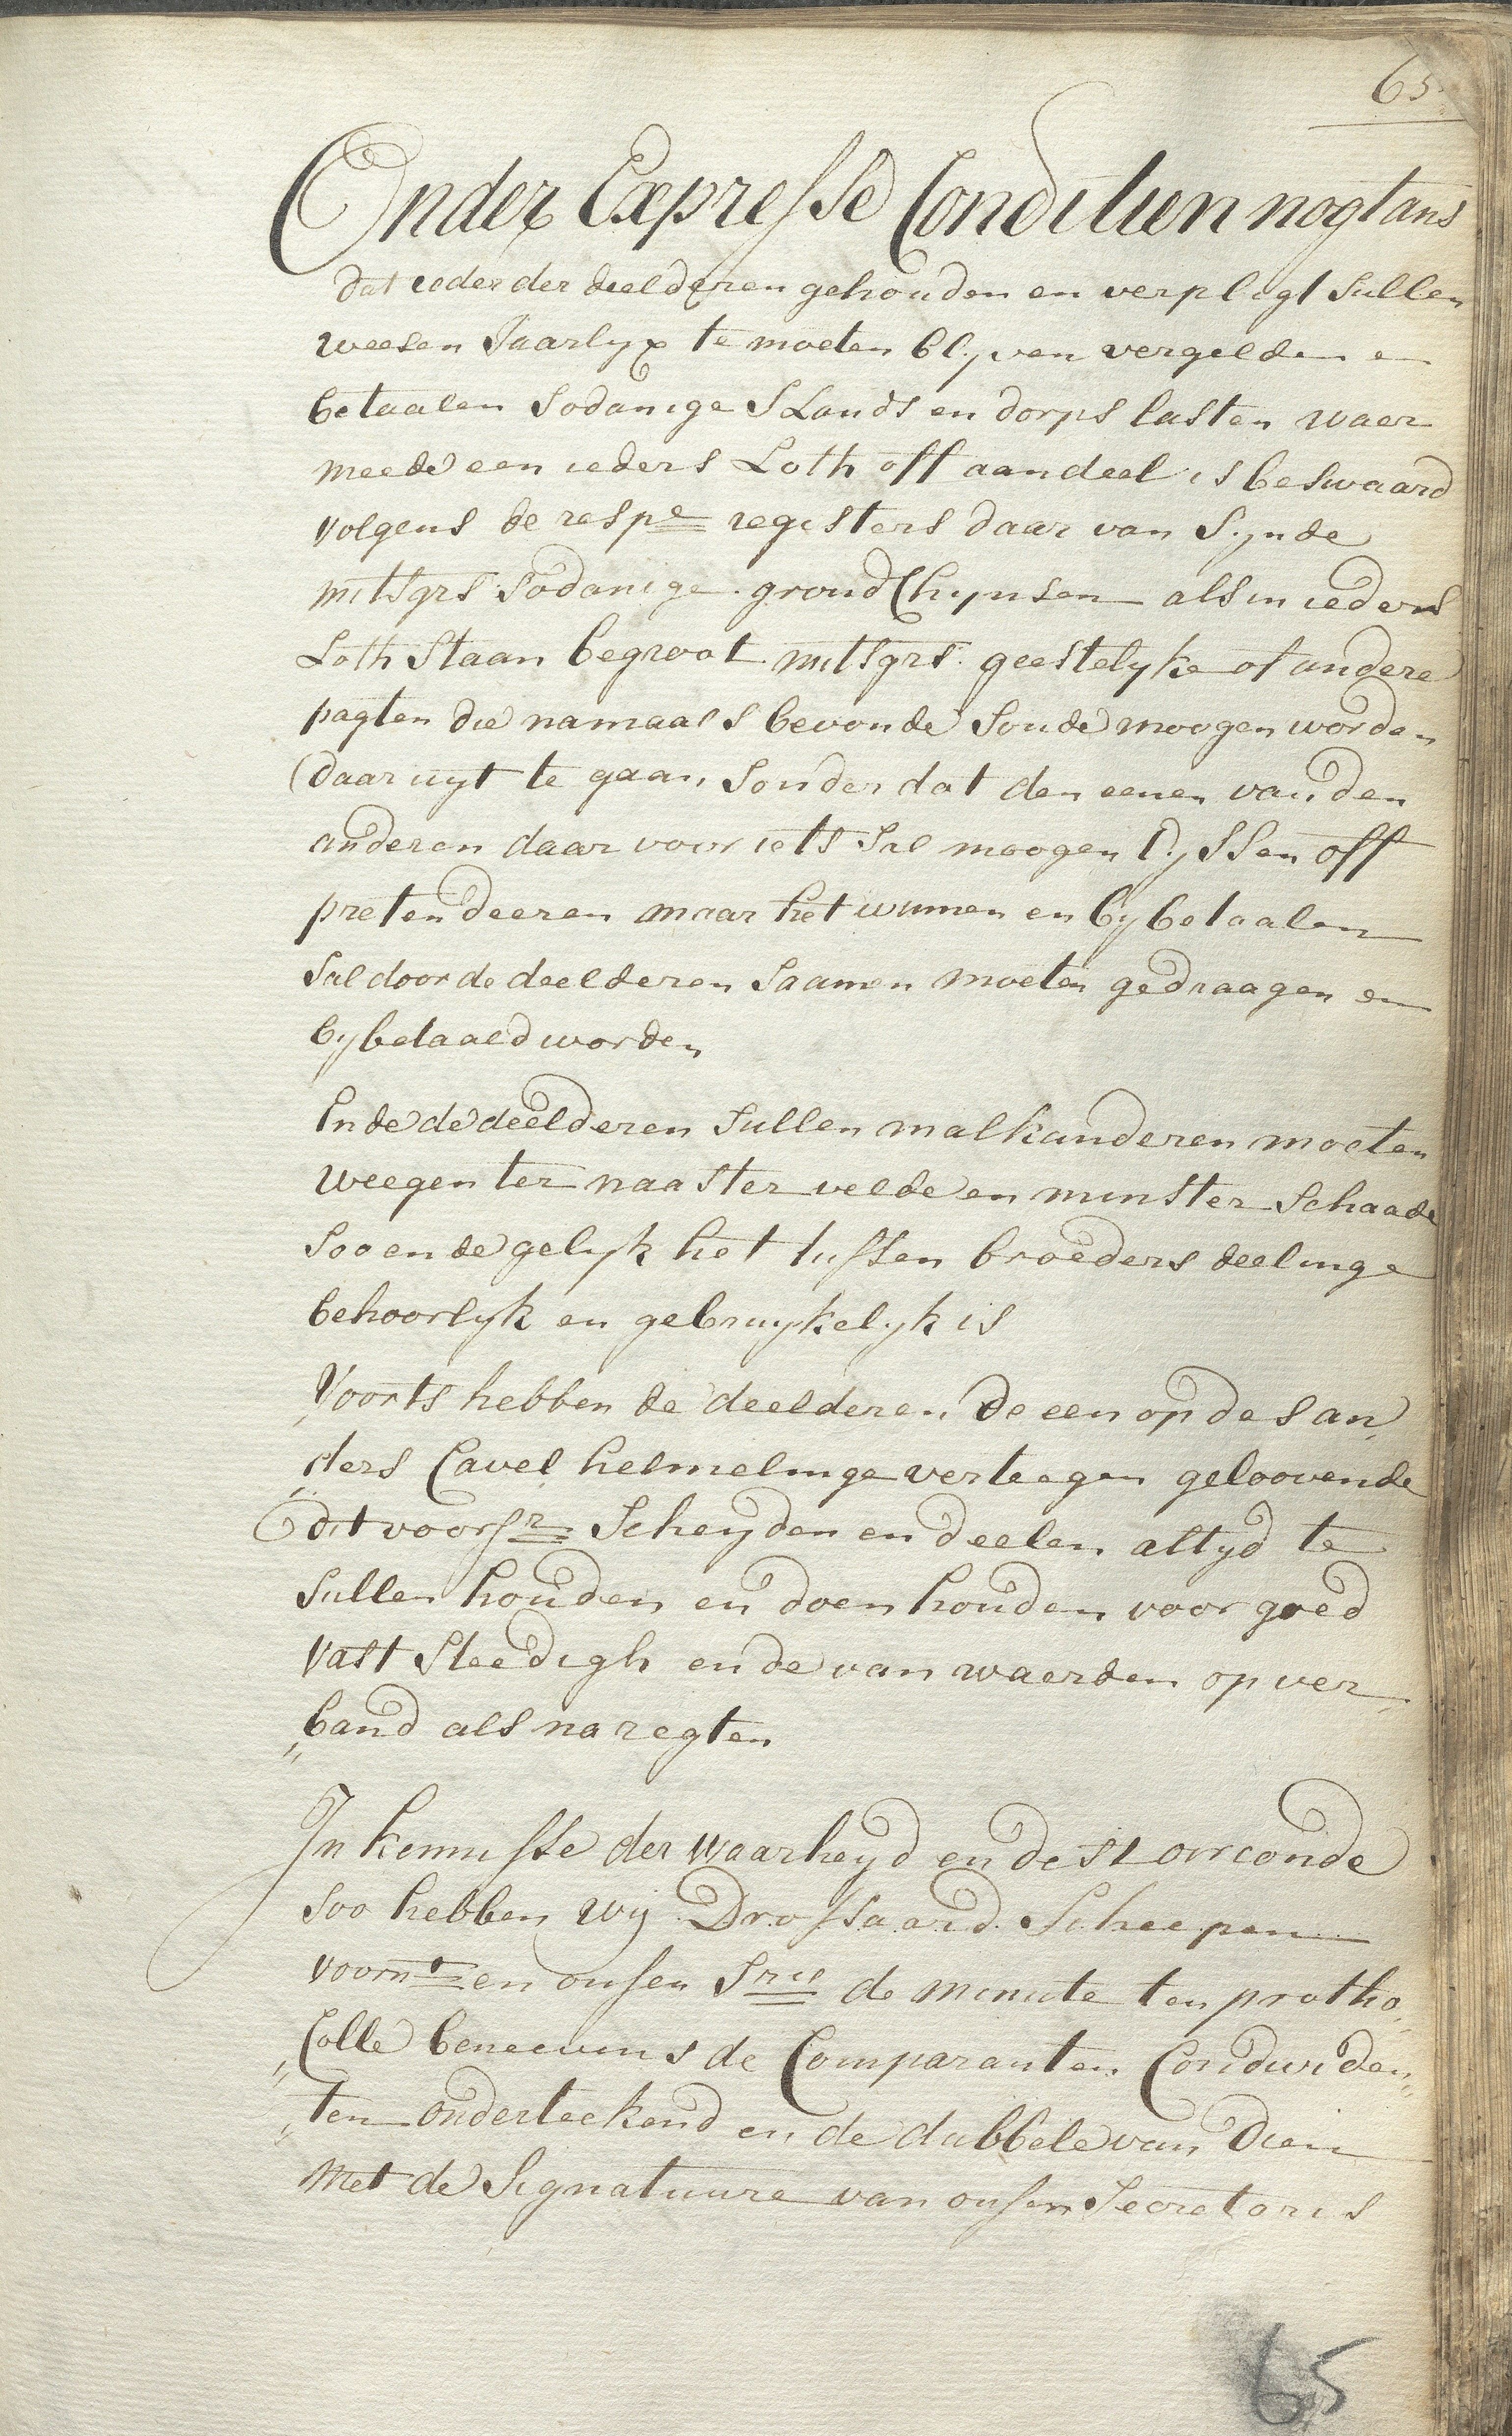 65.
Onder Expresse Conditien nogtans
dat ieder der deelderen gehouden en verpligt sullen
weesen Jaarlyx te moeten blyven vergelden en
betaalen sodanige SLands en dorps lasten waer
meede een ieders Loth off aandeel is beswaard
volgens de respe registers daar van synde
mitsgrs sodanige grond Chynsen als in ieders
Loth staan begroot mitsgrs geestelyke of andere
pagten die namaals bevonde soude moogen worden
daar uyt te gaan, sonder dat den eenen van den
anderen daar voor iets sal moogen Eyssen off
pretendeeren maar het winnen en bybetaalen
sal door de deelderen saamen moeten gedraagen en
bybetaald worden
Ende de deelderen sullen malkanderen moeten
weegen ter naaster velde en minster schaade
soo ende gelyk het tussen broeders deelinge
behoorlyk en gebruykelyk is
Voorts hebben de deelderen de een op des an,,
,,ders Cavel helmelinge verteegen geloovende
dit voorsr. Scheyden en deelen altyd te
sullen houden en doen houden voor goed
vast steedigh ende van waerden op ver,,
,,band als na regten
In kennisse der waarheyd en dest oirconde
soo hebben wij Drossaard Scheepen
voornt en onsen Sris de minute ten protho,,
,,Colle beneevens de Comparanten Condividen,,
,,ten onderteekend en de dubbele van dien
Met de Signatuure van onsen Secretaris
65